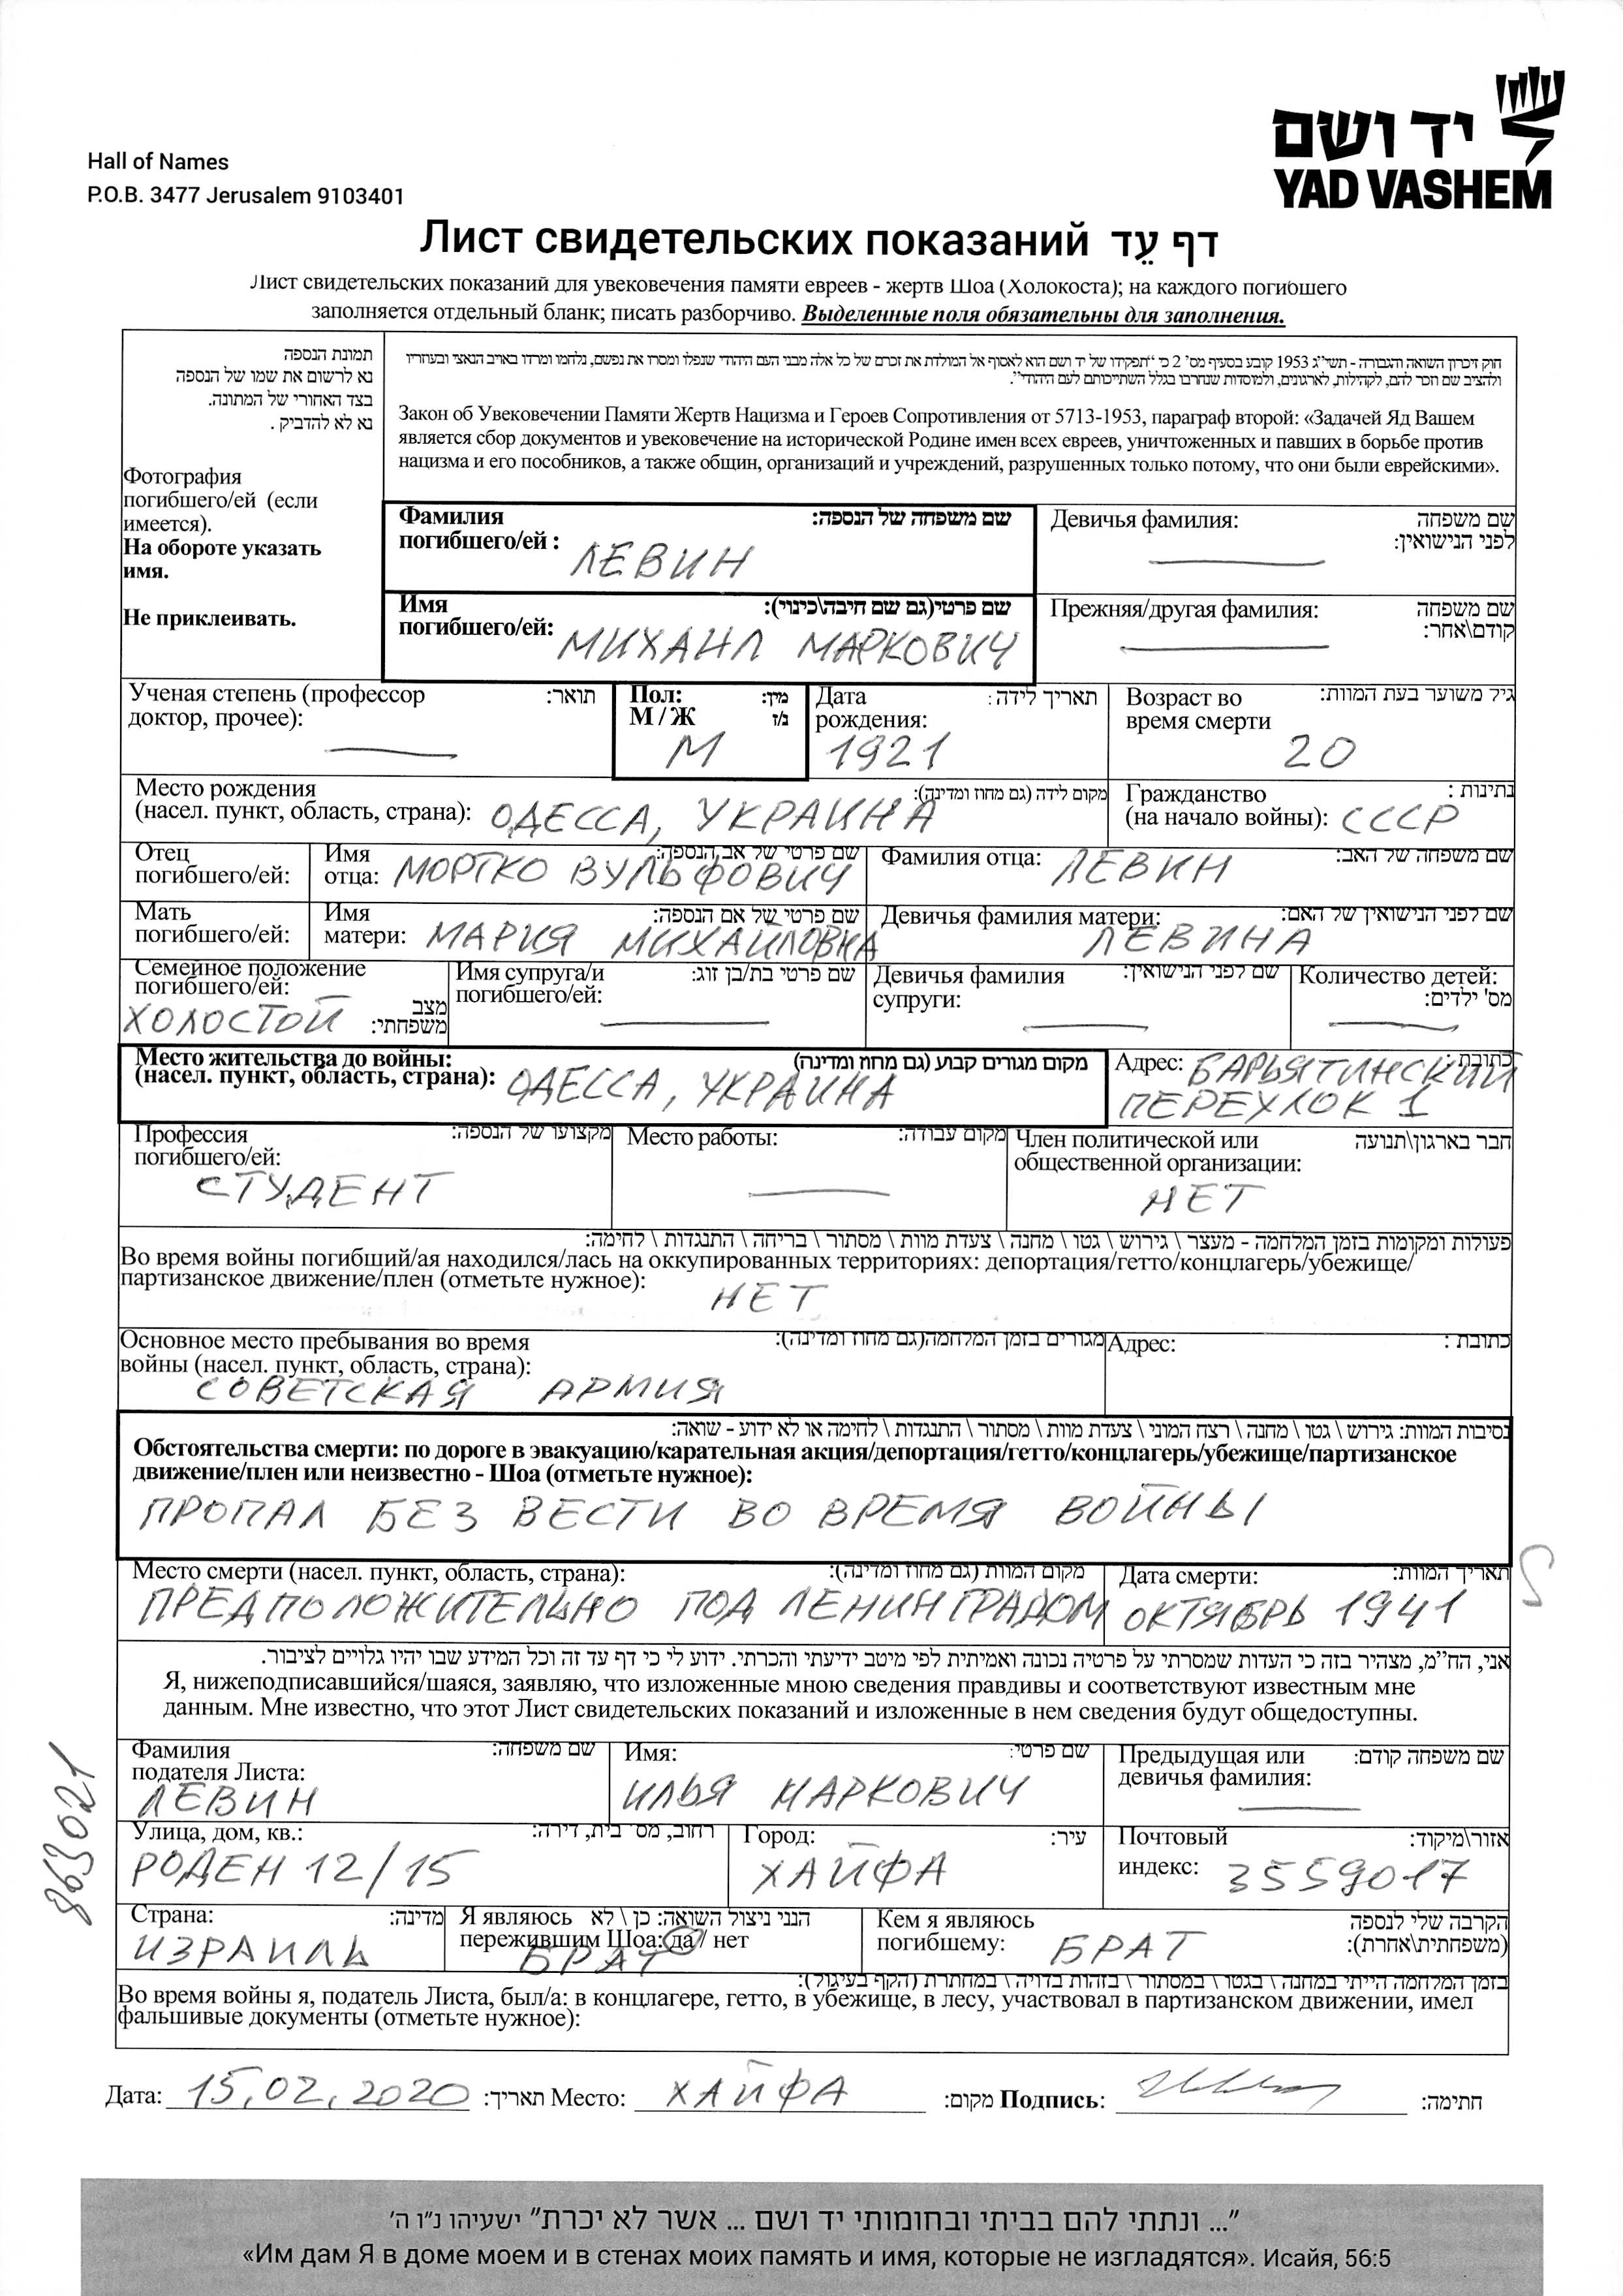 יד ושם
YAD VASHEM
Hall of Names
P.O.B. 3477 Jerusalem 9103401
Лист свидетельских показаний דף עֵד
Лист свидетельских показаний для увековечения памяти евреев - жертв Шоа (Холокоста); на каждого погибшего
заполняется отдельный бланк; писать разборчиво. Выделенные поля обязательны для заполнения.
תמונת הנספה
נא לרשום את שמו של הנספה
בצד האחורי של המתונה.
נא לא להדביק .
Фотография
погибшего/ей (если
имеется).
На обороте указать
имя.
Не приклеивать.
חוק זיכרון השואה והגבורה - תשי"ג 1953 קובע בסעיף מס' 2 כי "תפקידו של יד ושם הוא לאסוף אל המולדת את זכרם של כל אלה מבני העם היהודי שנפלו ומסרו את נפשם, נלחמו ומרדו באויב הנאצי ובעוזריו
ולהציב שם וזכר להם, לקהילות, לארגונים, ולמוסדות שנחרבו בגלל השתייכותם לעם היהודי".
Закон об Увековечении Памяти Жертв Нацизма и Героев Сопротивления от 5713-1953, параграф второй: «Задачей Яд Вашем
является сбор документов и увековечение на исторической Родине имен всех евреев, уничтоженных и павших в борьбе против
нацизма и его пособников, а также общин, организаций и учреждений, разрушенных только потому, что они были еврейскими».
Фамилия שם משפחה של הנספה:
погибшего/ей :
ЛЕВИН
Девичья фамилия: שם משפחה
לפני הנישואין:
Имя שם פרטי(גם שם חיבה\כינוי):
погибшего/ей: МИХАИЛ МАРКОВИЧ
Прежняя/другая фамилия: שם משפחה
קודם\אחר:
Ученая степень (профессор תואר:
доктор, прочее):
Пол: מין:
М / Ж ז/נ
М
Дата תאריך לידה :
рождения:
1921
Возраст во גיל משוער בעת המוות:
время смерти
20
Место рождения
(насел. пункт, область, страна): מקום לידה (גם מחוז ומדינה):
ОДЕССА, УКРАИНА
Гражданство נתינות :
(на начало войны): СССР
Отец
погибшего/ей:
Имя שם פרטי של אב הנספה:
отца: МОРТКО ВУЛЬФОВИЧ
Фамилия отца: ЛЕВИН שם משפחה של האב:
Мать
погибшего/ей:
Имя שם פרטי של אם הנספה:
матери: МАРИЯ МИХАЙЛОВНА
Девичья фамилия матери: שם לפני הנישואין של האם:
ЛЕВИНА
Семейное положение
погибшего/ей:
ХОЛОСТОЙ מצב
משפחתי:
Имя супруга/и שם פרטי בת/בן זוג:
погибшего/ей:
Девичья фамилия שם לפני הנישואין:
супруги:
Количество детей:
מס' ילדים:
Место жительства до войны: מקום מגורים קבוע (גם מחוז ומדינה)
(насел. пункт, область, страна): ОДЕССА, УКРАИНА
Адрес: БАРЬЯТИНСКИЙ כתובת :
ПЕРЕУЛОК 1
Профессия מקצועו של הנספה:
погибшего/ей:
СТУДЕНТ
Место работы: מקום עבודה:
Член политической или חבר בארגון\תנועה
общественной организации:
НЕТ
פעולות ומקומות בזמן המלחמה - מעצר \ גירוש \ גטו \ מחנה \ צעדת מוות \ מסתור \ בריחה \ התנגדות \ לחימה:
Во время войны погибший/ая находился/лась на оккупированных территориях: депортация/гетто/концлагерь/убежище/
партизанское движение/плен (отметьте нужное):
НЕТ
Основное место пребывания во время מגורים בזמן המלחמה(גם מחוז ומדינה):
войны (насел. пункт, область, страна):
СОВЕТСКАЯ АРМИЯ
Адрес: כתובת :
נסיבות המוות: גירוש \ גטו \ מחנה \ רצח המוני \ צעדת מוות \ מסתור \ התנגדות \ לחימה או לא ידוע - שואה:
Обстоятельства смерти: по дороге в эвакуацию/карательная акция/депортация/гетто/концлагерь/убежище/партизанское
движение/плен или неизвестно - Шоа (отметьте нужное):
ПРОПАЛ БЕЗ ВЕСТИ ВО ВРЕМЯ ВОЙНЫ
Место смерти (насел. пункт, область, страна): מקום המוות (גם מחוז ומדינה):
ПРЕДПОЛОЖИТЕЛЬНО ПОД ЛЕНИНГРАДОМ
Дата смерти: תאריך המוות:
ОКТЯБРЬ 1941
אני, הח"מ, מצהיר בזה כי העדות שמסרתי על פרטיה נכונה ואמיתית לפי מיטב ידיעתי והכרתי. ידוע לי כי דף עד זה וכל המידע שבו יהיו גלויים לציבור.
Я, нижеподписавшийся/шаяся, заявляю, что изложенные мною сведения правдивы и соответствуют известным мне
данным. Мне известно, что этот Лист свидетельских показаний и изложенные в нем сведения будут общедоступны.
Фамилия שם משפחה:
подателя Листа:
ЛЕВИН
Имя: שם פרטי:
ИЛЬЯ МАРКОВИЧ
Предыдущая или שם משפחה קודם:
девичья фамилия:
Улица, дом, кв.: רחוב, מס' בית, דירה:
РОДЕН 12/15
Город: עיר:
ХАЙФА
Почтовый אזור\מיקוד:
индекс: 3559017
Страна: מדינה:
ИЗРАИЛЬ
Я являюсь הנני ניצול השואה: כן \ לא
пережившим Шоа: да / нет
БРАТ
Кем я являюсь הקרבה שלי לנספה
погибшему: БРАТ (משפחתית\אחרת):
בזמן המלחמה הייתי במחנה \ בגטו \ במסתור \ בזהות בדויה \ במחתרת (הקף בעיגול):
Во время войны я, податель Листа, был/а: в концлагере, гетто, в убежище, в лесу, участвовал в партизанском движении, имел
фальшивые документы (отметьте нужное):
Дата: 15,02,2020 תאריך: Место: ХАЙФА מקום: Подпись: חתימה:
8630021
"... ונתתי להם בביתי ובחומותי יד ושם ... אשר לא יכרת" ישעיהו נ"ו ה'
«Им дам Я в доме моем и в стенах моих память и имя, которые не изгладятся». Исайя, 56:5